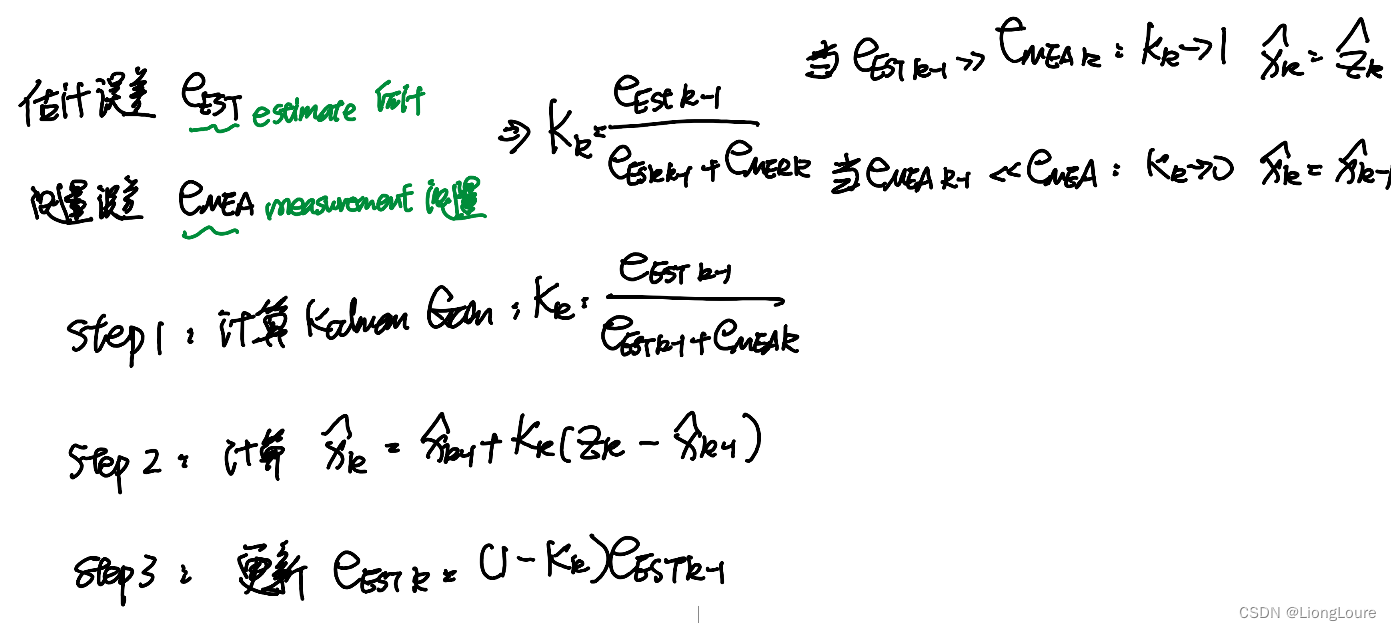 估计误差 e_EST estimate 估计
测量误差 e_MEA measurement 测量
⇒ K_k = e_Est k-1 / (e_EST k-1 + e_MEA k)
当 e_EST k-1 >> e_MEA k : K_k → 1 x̂_k = ẑ_k
当 e_MEA k-1 << e_MEA : K_k → 0 x̂_k = x̂_k-1
Step 1 : 计算 Kalman Gain : K_k = e_EST k-1 / (e_EST k-1 + e_MEA k)
Step 2 : 计算 x̂_k = x̂_k-1 + K_k (z_k - x̂_k-1)
Step 3 : 更新 e_EST k = (1 - K_k) e_EST k-1
CSDN @LiongLoure